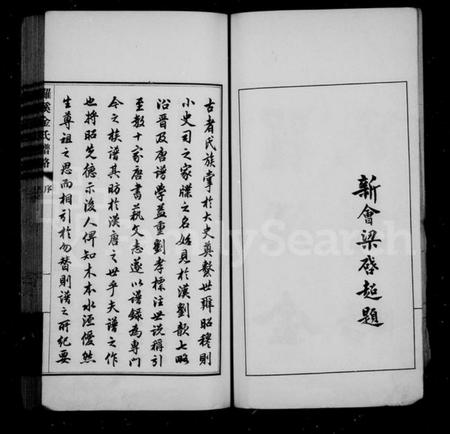 新會梁啓超題
古者氏族掌於大史奠繫世辨昭穆則
小史司之家牒之名始見於漢劉歆七略
沿晉及唐譜學益重劉孝標注世說稱引
至數十家唐書藝文志遂以譜錄為專門
今之族譜其昉於漢唐之世乎夫譜之作
也將昭先德示後人俾知木本水源僾然
生尊祖之思而相引於勿替則譜之所紀要
溪金氏譜略 序
FamilySearch